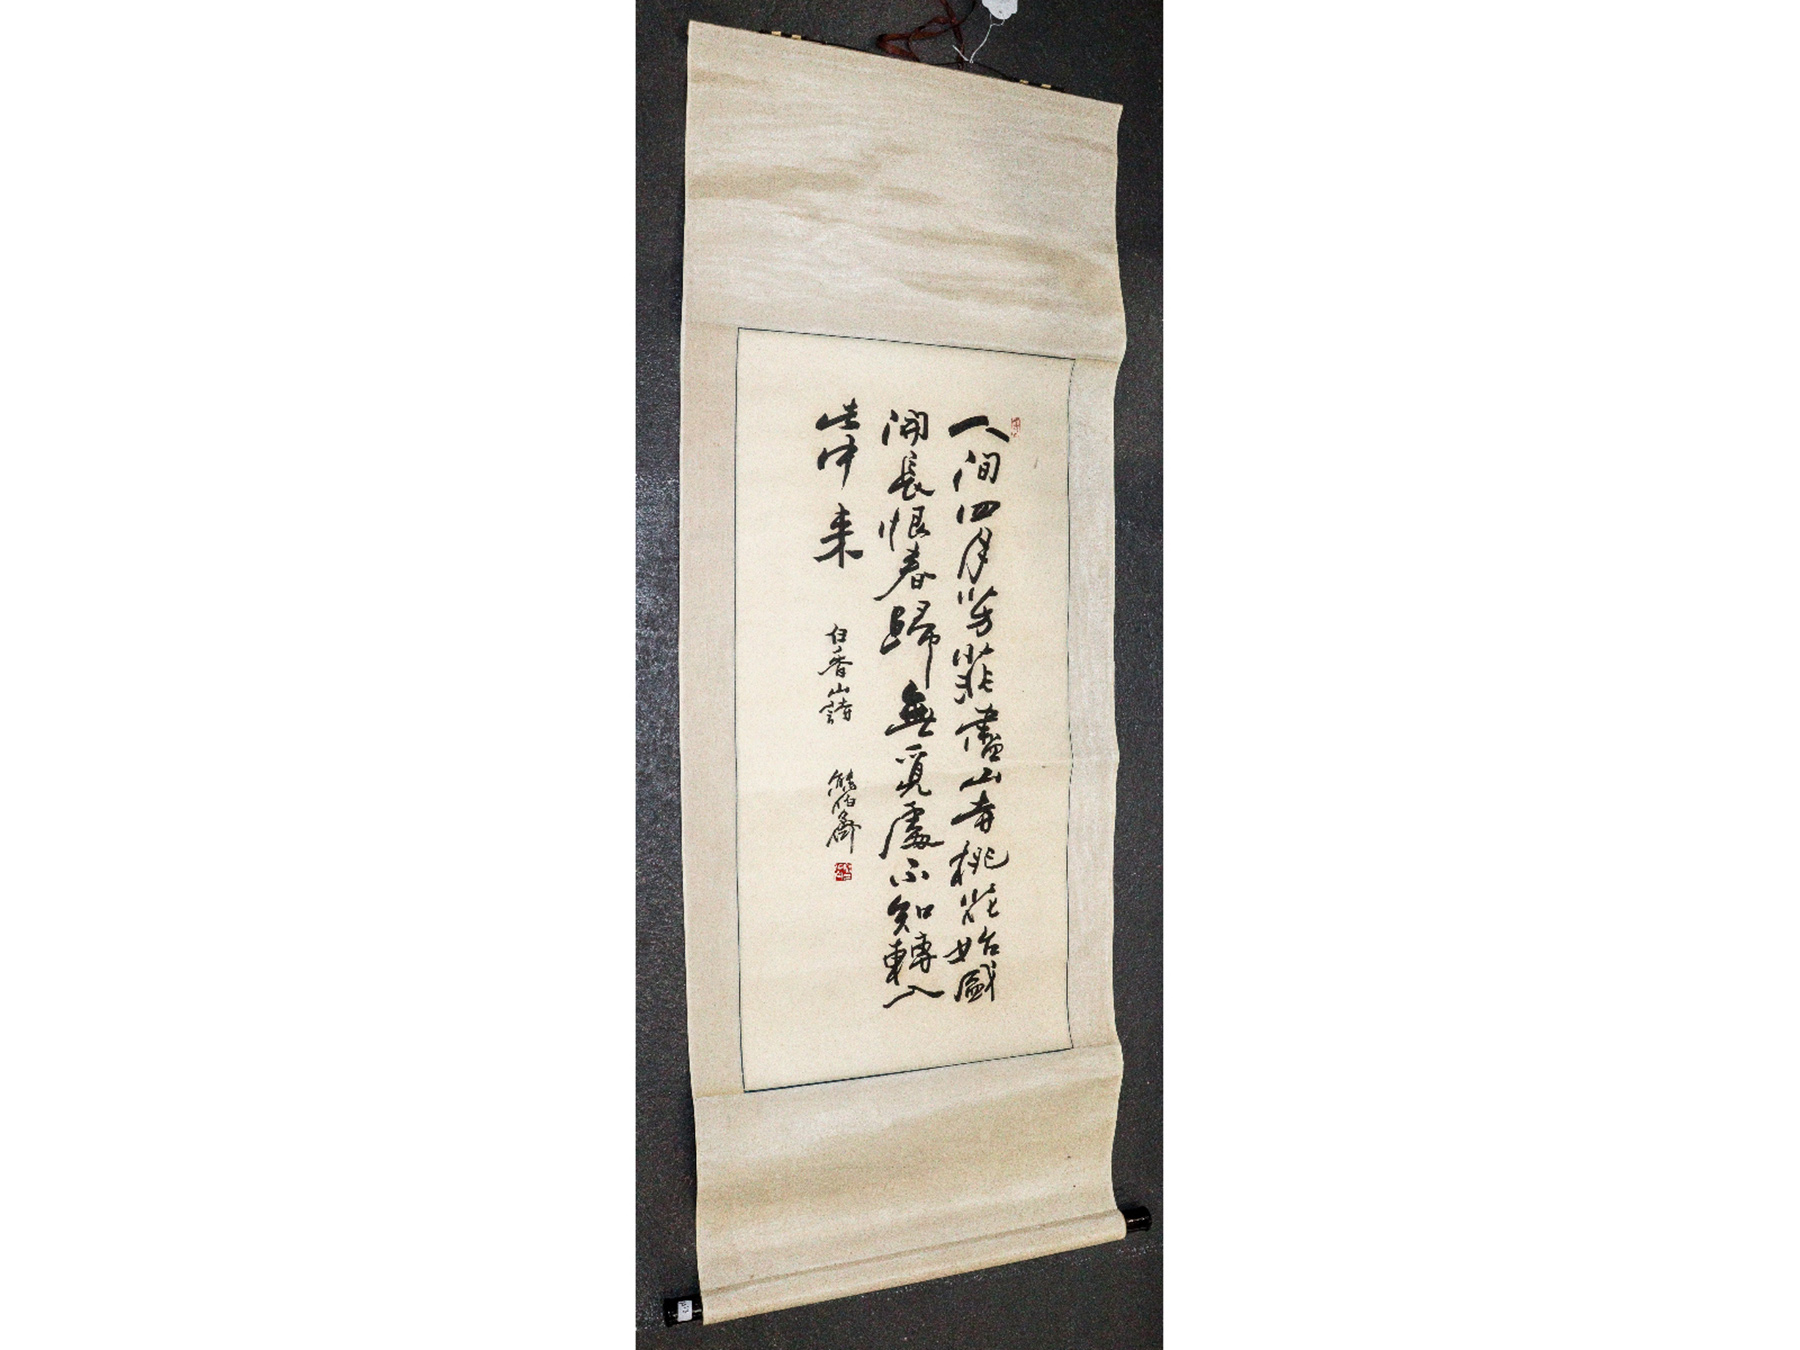 人間四月芳菲盡山寺桃花始盛
開長恨春歸無覓處不知轉入
此中来 白香山詩 熊伯齊